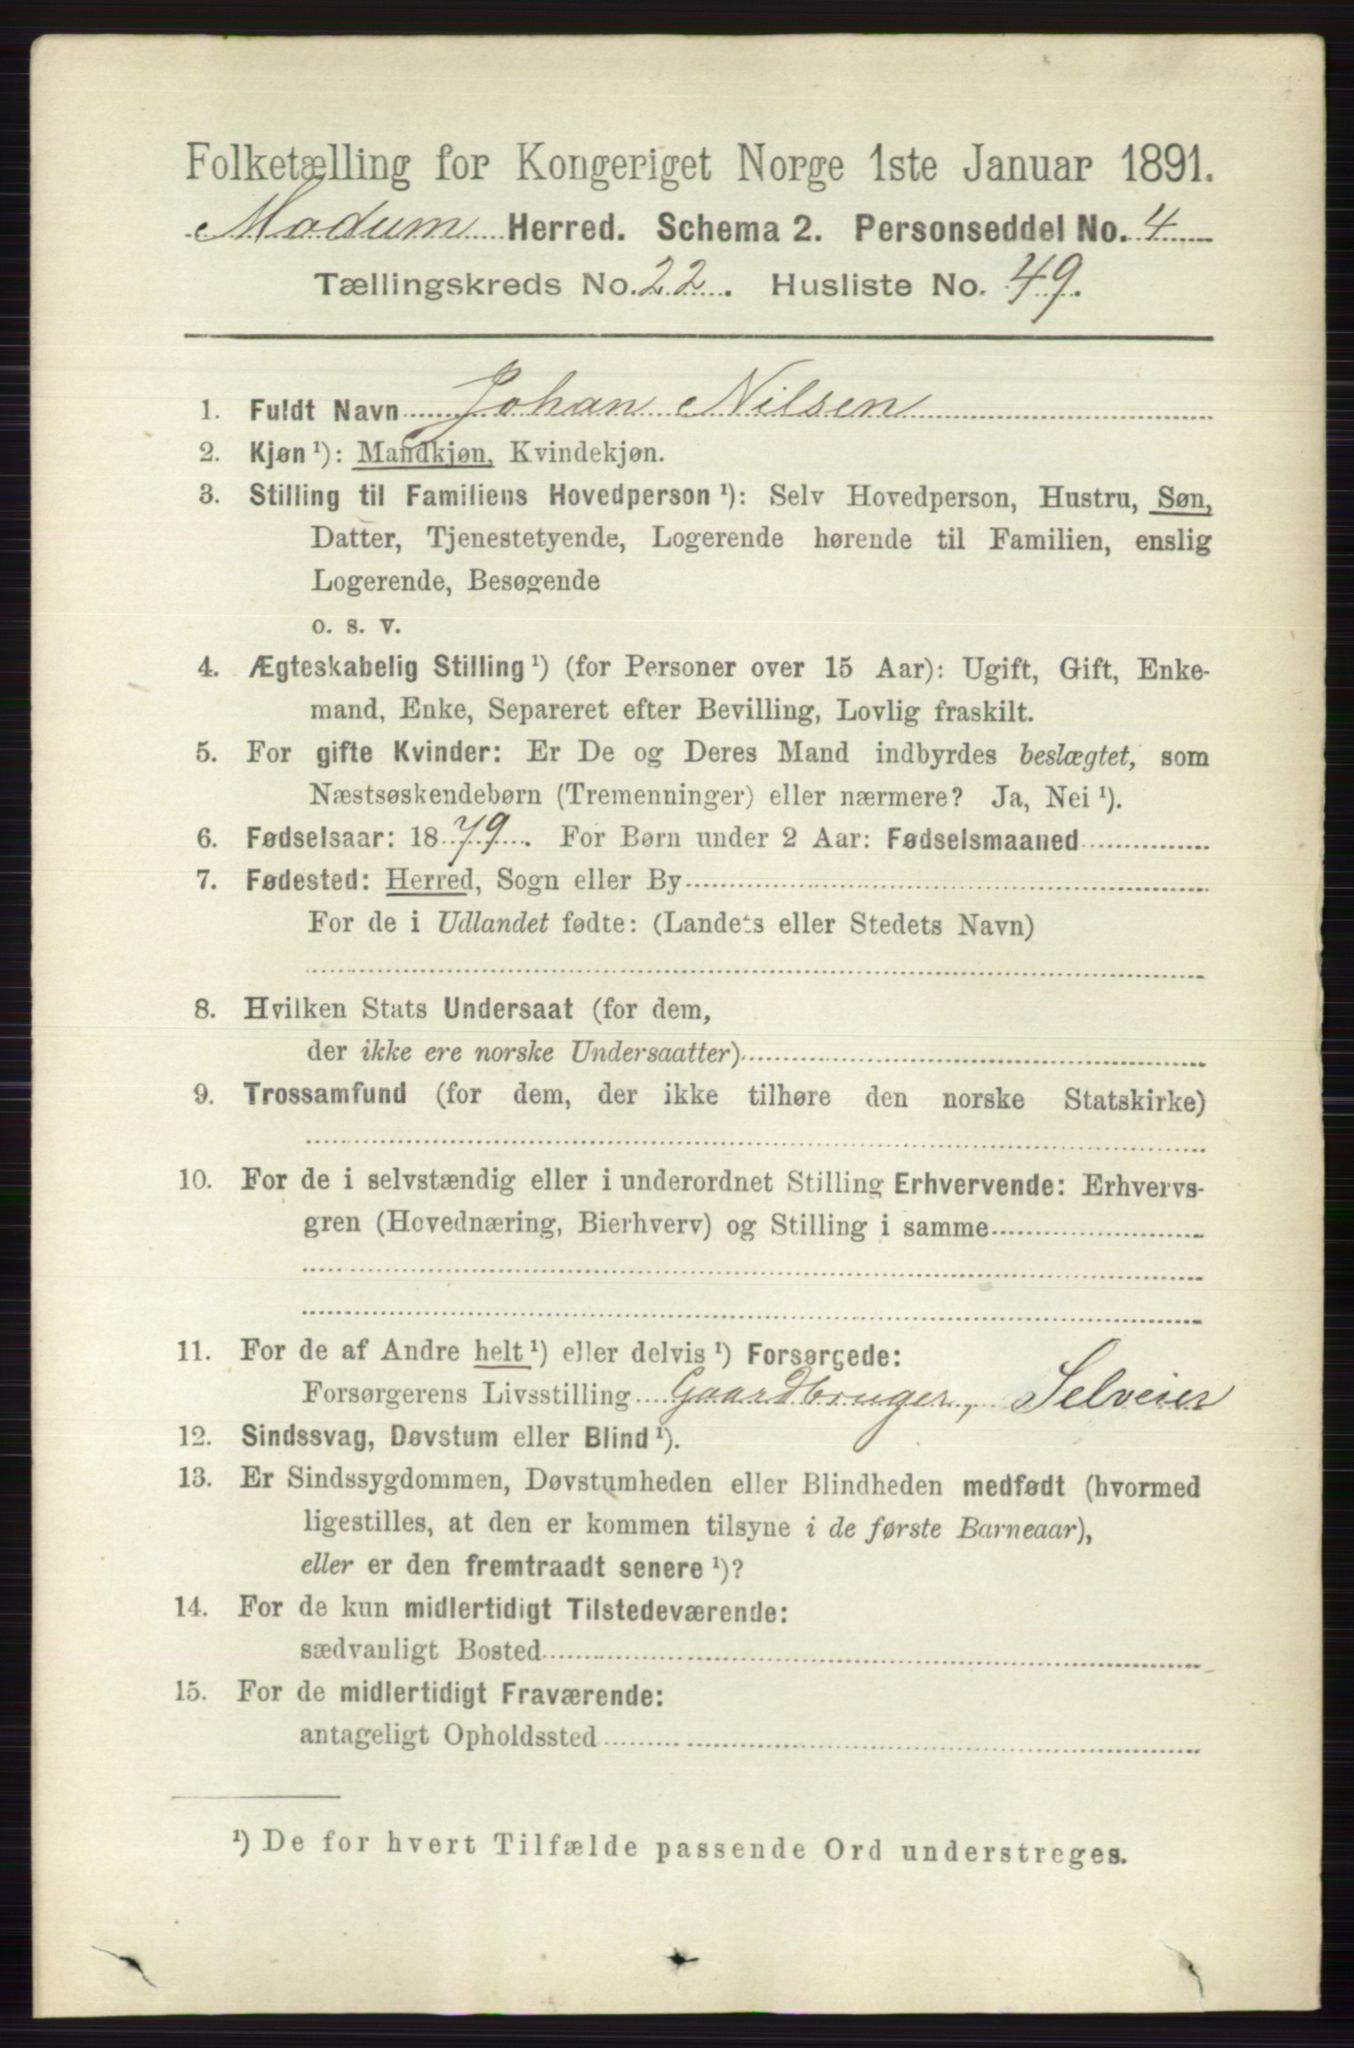 Folketælling for Kongeriget Norge 1ste Januar 1891.
Modum Herred. Schema 2. Personseddel No. 4
Tællingskreds No. 22. Husliste No. 49.
1. Fuldt Navn Johan Nilsen
2. Kjøn ¹): Mandkjøn, Kvindekjøn.
3. Stilling til Familiens Hovedperson ¹): Selv Hovedperson, Hustru, Søn,
Datter, Tjenestetyende, Logerende hørende til Familien, enslig
Logerende, Besøgende
o. s. v.
4. Ægteskabelig Stilling ¹) (for Personer over 15 Aar): Ugift, Gift, Enke-
mand, Enke, Separeret efter Bevilling, Lovlig fraskilt.
5. For gifte Kvinder: Er De og Deres Mand indbyrdes beslægtet, som
Næstsøskendebørn (Tremenninger) eller nærmere? Ja, Nei ¹).
6. Fødselsaar: 1879. For Børn under 2 Aar: Fødselsmaaned
7. Fødested: Herred, Sogn eller By
For de i Udlandet fødte: (Landets eller Stedets Navn)
8. Hvilken Stats Undersaat (for dem,
der ikke ere norske Undersaatter)
9. Trossamfund (for dem, der ikke tilhøre den norske Statskirke)
10. For de i selvstændig eller i underordnet Stilling Erhvervende: Erhvervs-
gren (Hovednæring, Bierhverv) og Stilling i samme
11. For de af Andre helt ¹) eller delvis ¹) Forsørgede:
Forsørgerens Livsstilling Gaardbruger, Selveier
12. Sindssvag, Døvstum eller Blind ¹).
13. Er Sindssygdommen, Døvstumheden eller Blindheden medfødt (hvormed
ligestilles, at den er kommen tilsyne i de første Barneaar),
eller er den fremtraadt senere ¹)?
14. For de kun midlertidigt Tilstedeværende:
sædvanligt Bosted
15. For de midlertidigt Fraværende:
antageligt Opholdssted
¹) De for hvert Tilfælde passende Ord understreges.